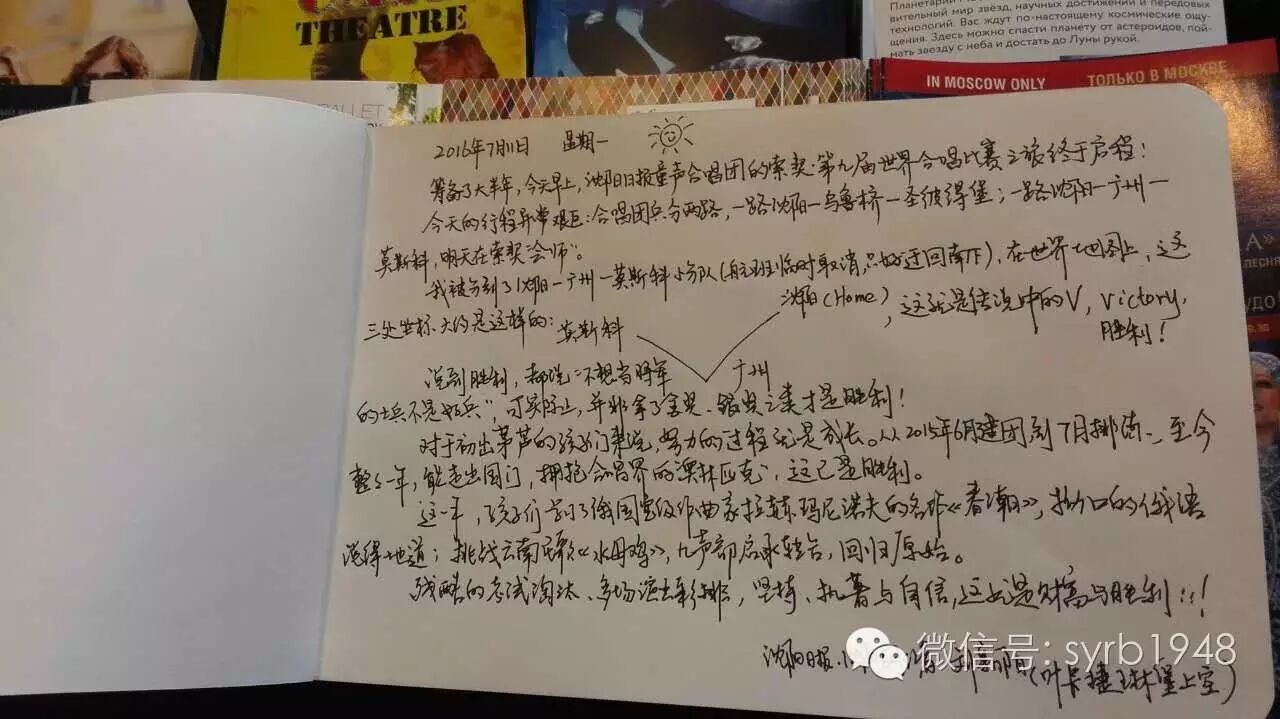 THEATRE
вительный мир звёзд, научных достижений и передовых
технологий. Вас ждут по-настоящему космические ощу-
щения. Здесь можно спасти планету от астероидов, пой-
мать звезду с неба и достать до Луны рукой.
IN MOSCOW ONLY ТОЛЬКО В МОСКВЕ
2016年7月11日 星期一
筹备了大半年,今天早上,沈阳日报童声合唱团的索契·第九届世界合唱比赛之旅终于启程!
今天的行程异常艰巨:合唱团兵分两路,一路沈阳—乌鲁木齐—圣彼得堡;一路沈阳—广州—
莫斯科,明天在索契“会师”。
我被分到了沈阳—广州—莫斯科小分队(航班临时取消,只好迂回南下),在世界地图上,这
三处坐标大约是这样的:莫斯科 沈阳(Home),这就是传说中的V,victory,
胜利!
广州
说到胜利,都说“不想当将军
的士兵不是好兵”,可实际上,并非拿了金奖、银奖之类才是胜利!
对于初出茅芦的孩子们来说,努力的过程就是成长。从2015年6月建团到7月排练,至今
整整一年,能走出国门,拥抱“合唱界的奥林匹克”,这已是胜利。
这一年,孩子们学习了俄国宝级作曲家拉赫玛尼诺夫的名作《春潮》,拗口的俄语
说得地道;挑战云南民歌《水母鸡》,九声部启承转合,回归原始。
残酷的考试淘汰、多场演出彩排,坚持、执著与自信,这就是财富与胜利!!!
沈阳日报
微信号: syrb1948